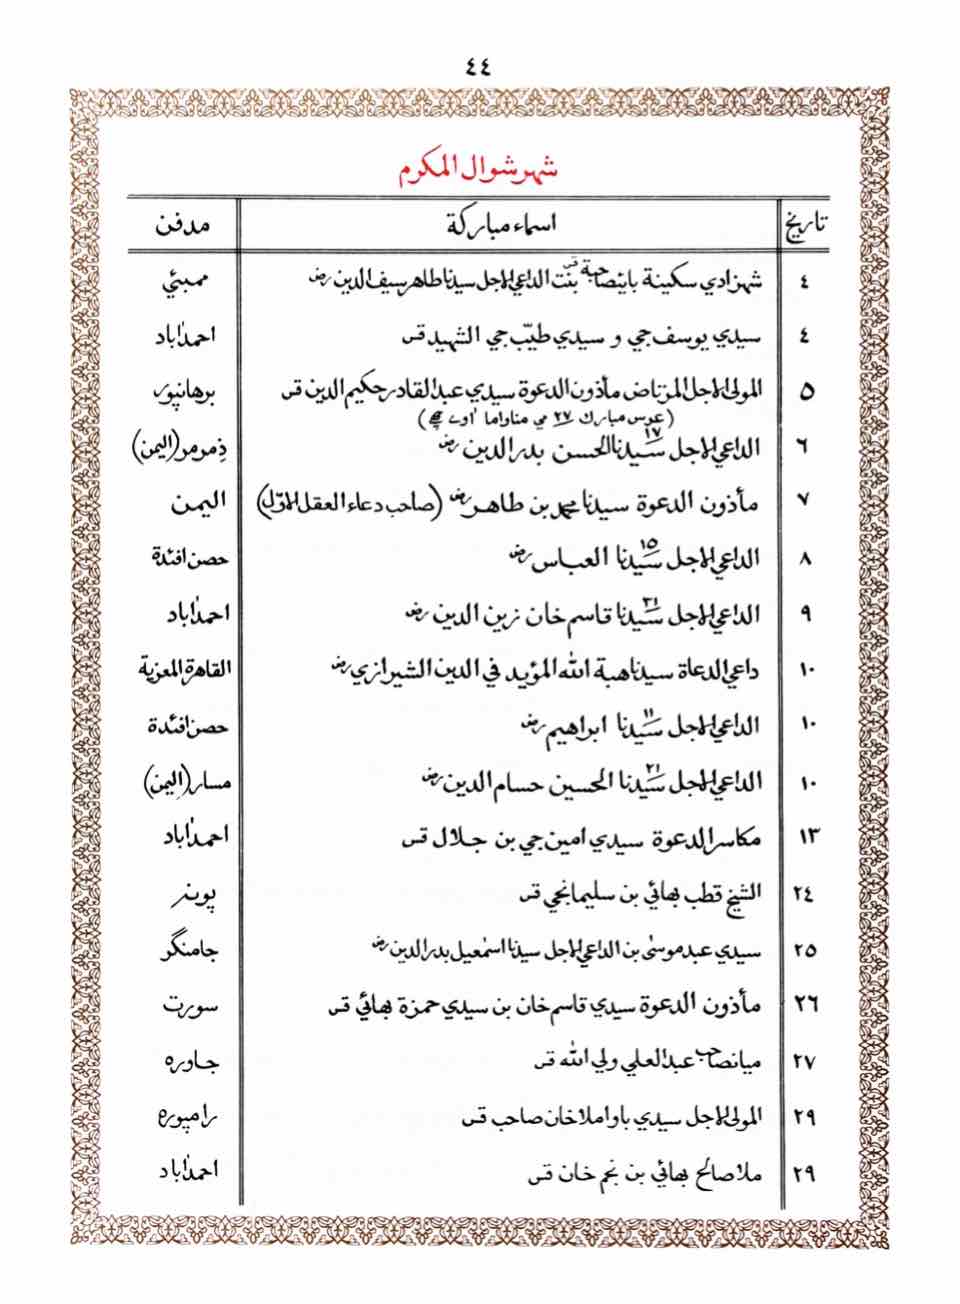 ٤٤
شهر شوال المكرم
تاريخ اسماء مباركة مدفن
٤ شهزادي سكينة بائيصاحبة قس بنت الداعي الاجل سيدنا طاهر سيف الدين رض ممبئي
٤ سيدي يوسف جي و سيدي طيّب جي الشهيد قس احمدٰاباد
٥ المولى الاجل المرتاض مأذون الدعوة سيدي عبد القادر حكيم الدين قس برهانپور
(عرس مبارك ٢٧ مي مناواما اٰوے چھے)
٦ الداعي الاجل ١٧ سيدنا الحسن بدر الدين رض ذمرمر (اليمن)
٧ مأذون الدعوة سيدنا محمد بن طاهر رض (صاحب دعاء العقل الاوّل) اليمن
٨ الداعي الاجل ١٥ سيدنا العباس رض حصن افئدة
٩ الداعي الاجل ٣١ سيدنا قاسم خان زين الدين رض احمدٰاباد
١٠ داعي الدعاة سيدنا هبة الله المؤيد في الدين الشيرازي رض القاهرة المعزية
١٠ الداعي الاجل ١١ سيدنا ابراهيم رض حصن افئدة
١٠ الداعي الاجل ٢١ سيدنا الحسين حسام الدين رض مسار (اليمن)
١٣ مكاسر الدعوة سيدي امين جي بن جلال قس احمدٰاباد
٢٤ الشيخ قطب بھائي بن سليمانجي قس پونہ
٢٥ سيدي عبد موسىٰ بن الداعي الاجل سيدنا اسمٰعيل بدر الدين رض جامنگر
٢٦ مأذون الدعوة سيدي قاسم خان بن سيدي حمزة بھائي قس سورت
٢٧ ميانصاحب عبد العلي ولي الله قس جاوره
٢٩ المولى الاجل سيدي باوا ملا خان صاحب قس رامپوره
٢٩ ملا صالح بھائي بن نجم خان قس احمدٰاباد